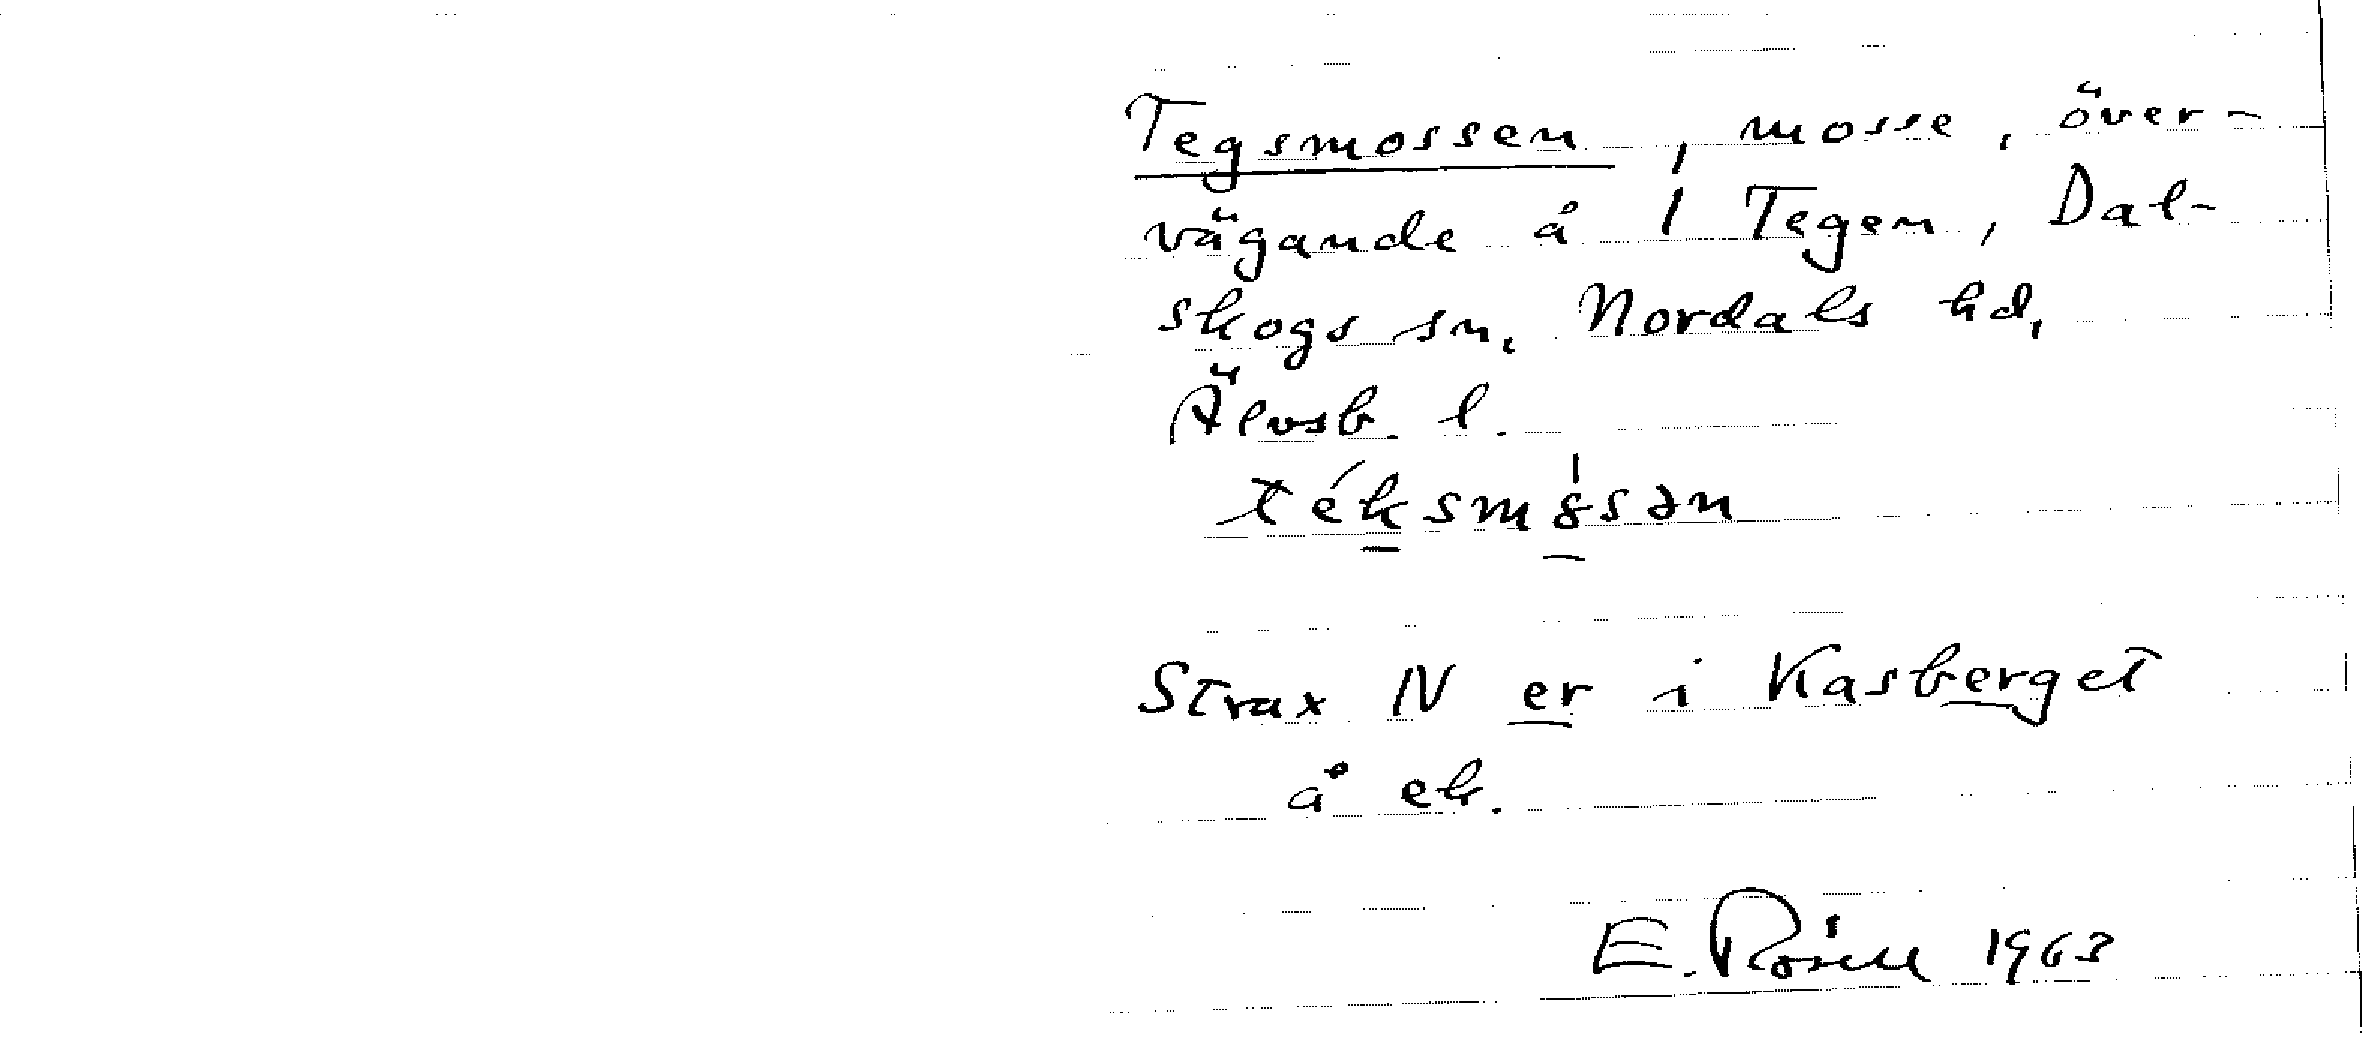 Tegsmossen, mosse, över-
vägande å 1 Tegen, Dal-
skogs sn, Nordals hd,
Älvsb. l.
téksmo̊sən
Strax N er i Kasberget
å ek.
E. Rosell 1963